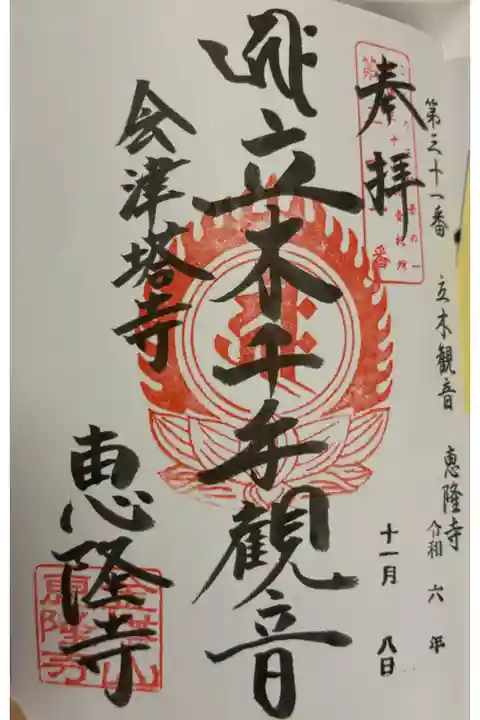 第三十一番 立木観音 恵隆寺
令和六年
十一月八日
奉拝
立木千手観音
会津塔寺
恵隆寺